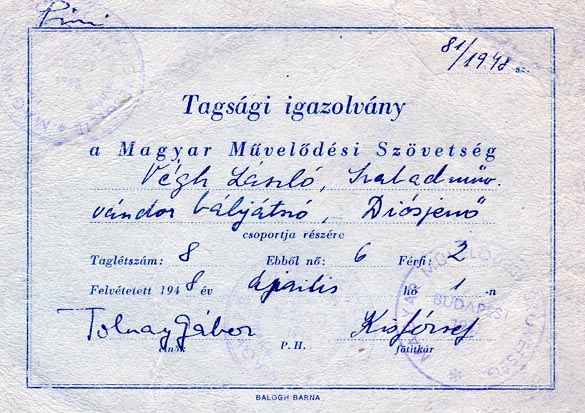 81/1948 sz.
Tagsági igazolvány
a Magyar Művelődési Szövetség
Végh László, Szabadműv.
vándor bábjátszó, Diósjenő
csoportja részére
Taglétszám: 8 Ebből nő: 6 Férfi: 2
Felvétetett 1948 év április hó 1-n
Tolnay Gábor Kis József
elnök P. H. főtitkár
BUDAPEST
BALOGH BARNA